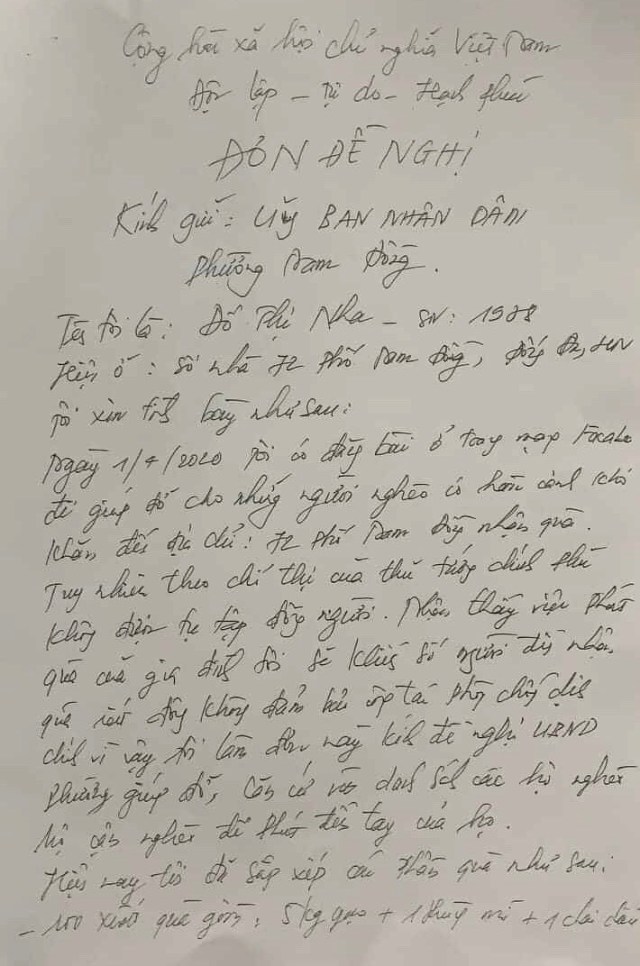 Cộng hòa xã hội chủ nghĩa Việt Nam
Độc lập - Tự do - Hạnh phúc
ĐƠN ĐỀ NGHỊ
Kính gửi: Uỷ BAN NHÂN DÂN
Phường Nam Đồng.
Tên tôi là: Đỗ Thị Nha - SN: 1988
Hiện ở: Số nhà 72 phố Nam Đồng, Đống Đa, HN
Tôi xin trình bày như sau:
Ngày 1/4/2020 tôi có đăng bài ở trong mạng
để giúp đỡ cho những người nghèo có hoàn cảnh khó
khăn đến địa chỉ: 72 phố Nam Đồng nhận quà.
Tuy nhiên theo chỉ thị của thủ tướng chính phủ
không được tụ tập đông người. Nhận thấy việc phát
quà của gia đình tôi sẽ khiến số người đến nhận
quà rất đông không đảm bảo công tác phòng chống dịch
chính vì vậy tôi làm đơn này kính đề nghị UBND
Phường giúp đỡ, căn cứ vào danh sách các hộ nghèo
hộ cận nghèo để phát đến tay của họ.
Hiện nay tôi đã sắp xếp các phần quà như sau:
- 100 xuất quà gồm: 5kg gạo + 1 thùng mì + 1 chai dầu